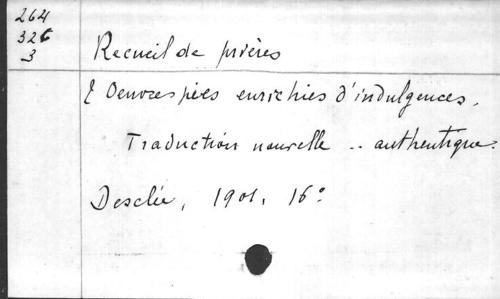 264
326
3
Recueil de prières
& Oeuvres pies enrichies d'indulgences.
Traduction nouvelle .. authentique.
Desclée, 1901, 16°